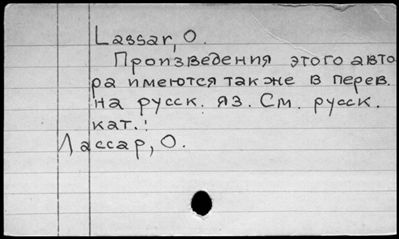 Lassar, O.
Произведения этого авто
ра имеются также в перев.
на русск. яз. См. русск.
кат.:
Лассар, О.